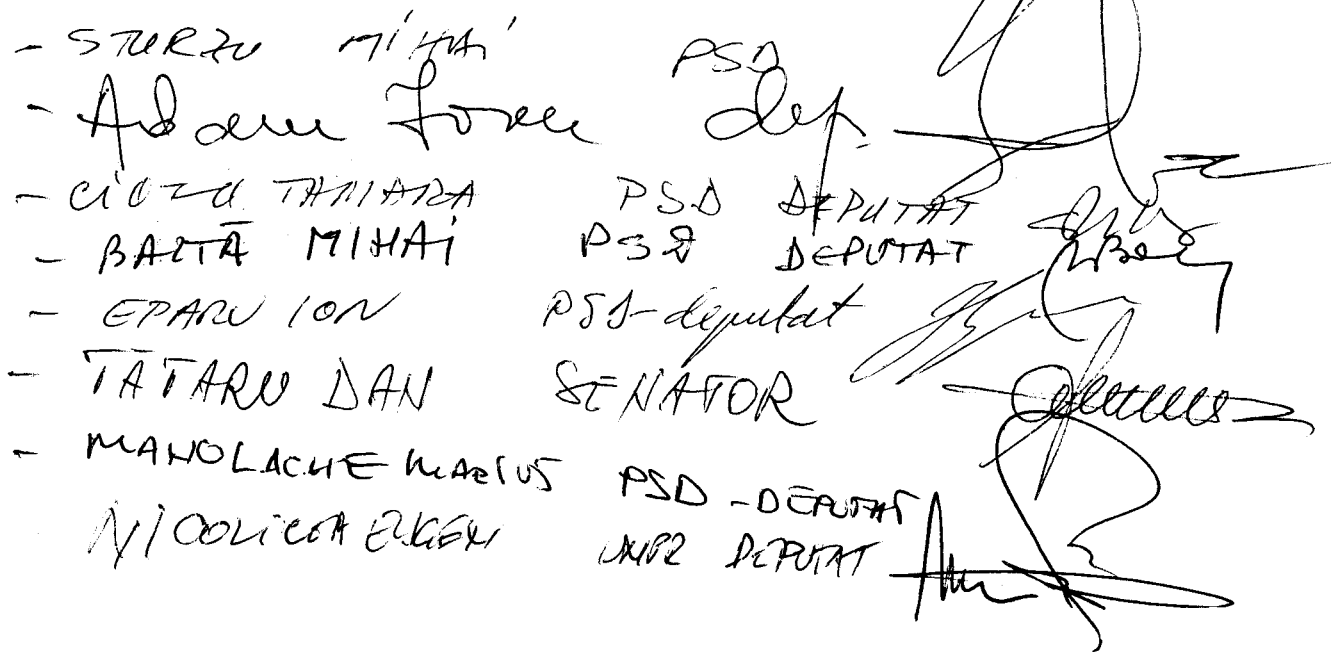 - STURZU MIHAI PSD
- Adam Ioan dep.
- CIOFU TAMARA PSD DEPUTAT
- BALTĂ MIHAI PSD DEPUTAT
- EPARU ION PSD-deputat
- TĂTARU DAN SENATOR
- MANOLACHE MARIUS PSD - DEPUTAT
NICOLICEA EUGEN UNPR DEPUTAT